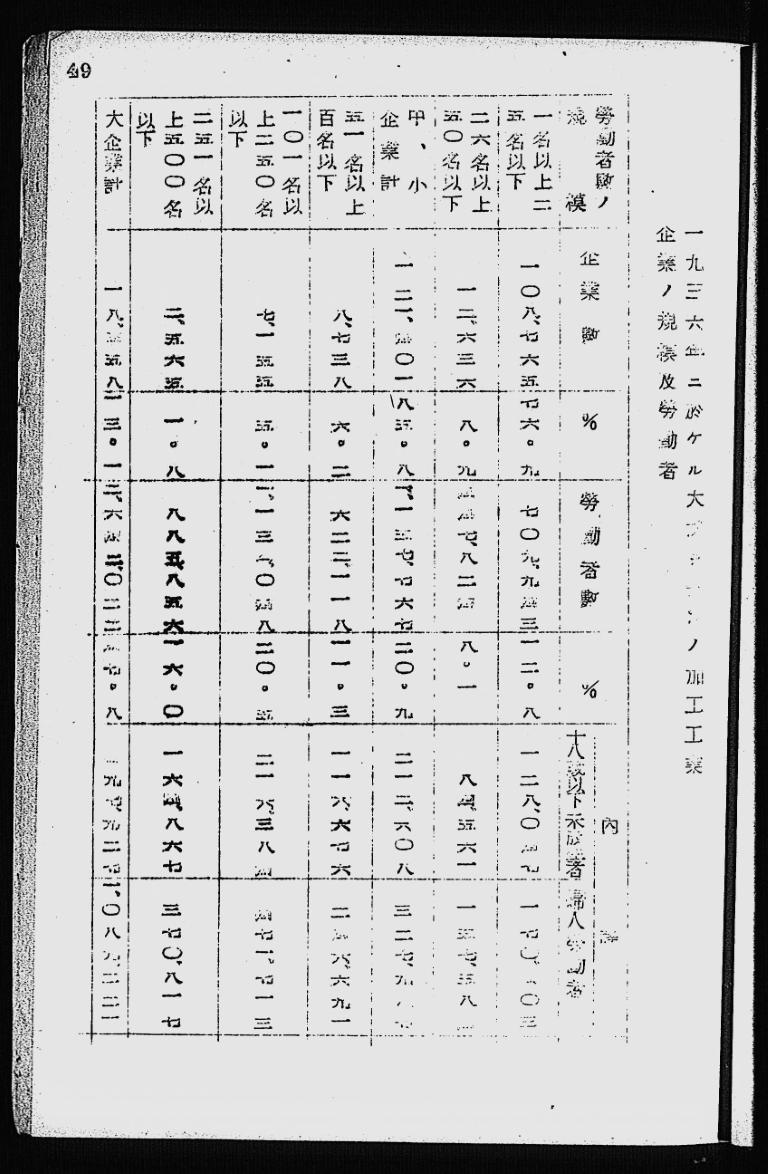 49
一九三六年ニ於ケル大ブリテンノ加工工業
企業ノ規模及勞働者
勞働者數ノ規模
企業數
%
勞働者數
%
內譯
十八歲以下
婦人勞働者
一名以上二五名以下
一〇八、七六五
七六。九
七〇九、九四三
一二。八
一二八、〇四七
二六名以上五〇名以下
一二、六三六
八。九
四四七、八二四
八。一
八四、五六一
一五七、五八
中、小企業計
一二一、四〇一
八五。八
一、一五七、七六七
二〇。九
二一二、六〇八
五一名以上百名以下
八、七三八
六。二
六二二、一一八
一一。三
一一六、六七六
二四六、六九一
一〇一名以上二五〇名以下
七、一五五
五。一
一、一三〇、〇四八
二〇。五
二一六、三八四
四七一、七一三
二五一名以上五〇〇名以下
二、五六五
一。八
八八五、八五六
一六。〇
一六四、八六七
三七〇、八一七
大企業計
一八、五五八
一三。一
四七。八
四九七、九二七
一、〇八九、二二一